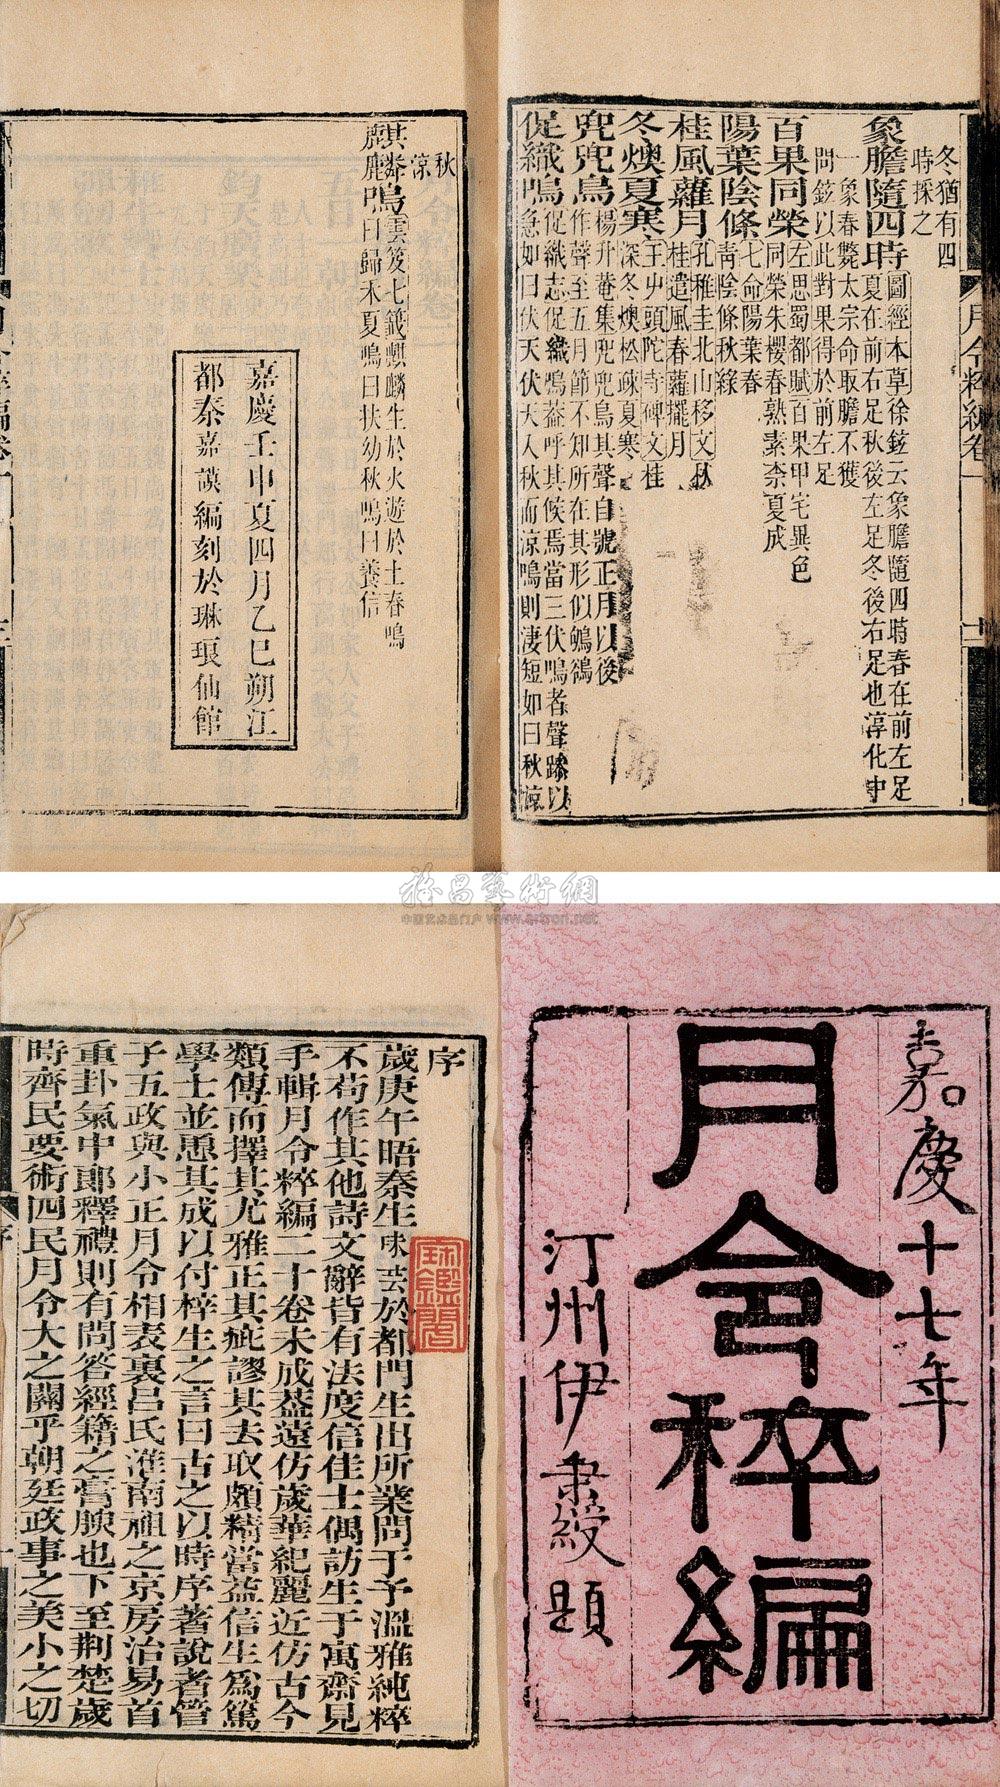 冬猶有四
時採之
象膽隨四時圖經本草徐鉉云象膽隨四時春在前左足
夏在前右足秋後左足冬後右足也淳化中
一象春斃太宗命取膽不獲
問鉉以此對果得於前左足
百果同榮左思蜀都賦百果甲宅異色
同榮朱櫻春熟素柰夏成
陽葉陰條七命陽葉春
青陰條秋綠
桂風蘿月孔稚圭北山移文秋
桂遣風春蘿擺月
冬燠夏寒王屮頭陀寺碑文桂
深冬燠松疎夏寒
兜兜鳥楊升菴集兜兜鳥其聲自號正月以後
作聲至五月節不知所在其形似鴝鵒
促織鳴促織志促織鳴葢呼其候焉當三伏鳴者聲躁以
急如曰伏天伏天入秋而涼鳴則淒短如曰秋涼
月令粹編卷一
秋
涼
麒麟鳴雲笈七籤麒麟生於火遊於土春鳴
曰歸禾夏鳴曰扶幼秋鳴曰養信
嘉慶壬申夏四月乙巳朔江
都秦嘉謨編刻於琳琅仙館
雅昌藝術網
www.artron.net
序
歲庚午晤秦生味芸於都門生出所業問于予溫雅純粹
不苟作其他詩文辭皆有法度信佳士偶訪生于寓齋見
手輯月令粹編二十卷未成葢遠仿歲華紀麗近仿古今
類傳而擇其尤雅正其疵謬其去取頗精當益信生爲篤
學士並慫其成以付梓生之言曰古之以時序著說者管
子五政與小正月令相表裏呂氏淮南祖之京房治易首
重卦氣中郎釋禮則有問答經籍之膏腴也下至荆楚歲
時齊民要術四民月令大之關乎朝廷政事之美小之切
序
一
嘉慶十七年
月令粹編
汀州伊秉綬題